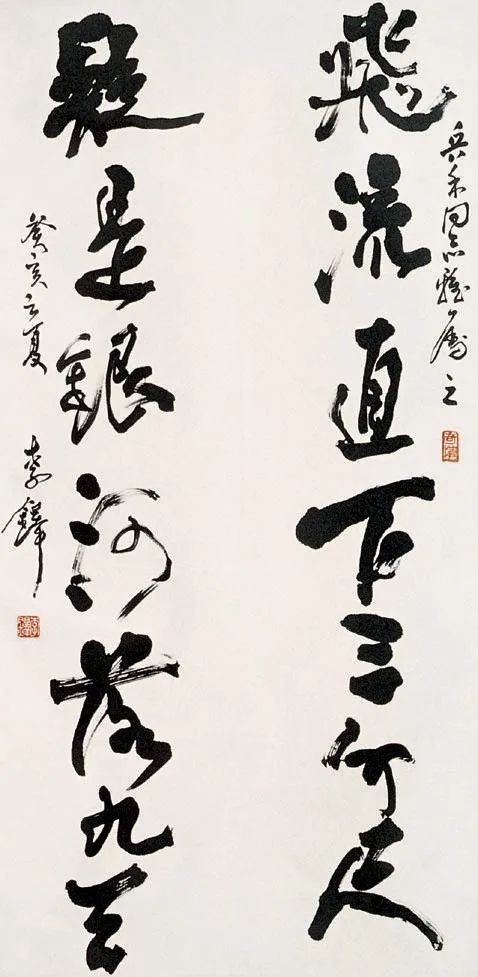 兵禾同志雅屬之
飛流直下三仟尺
疑是銀河落九天
癸亥之夏
李鐸
李鐸